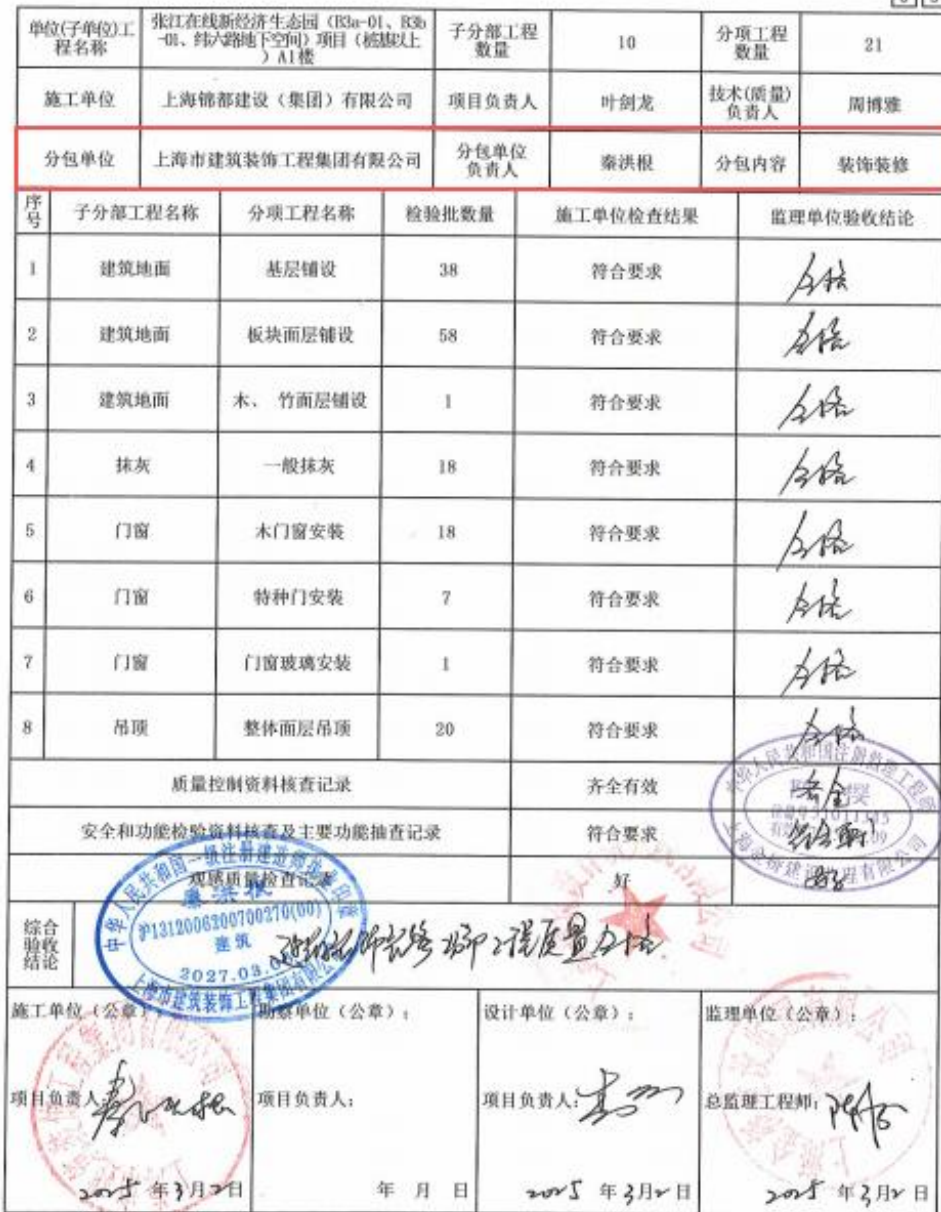 单位(子单位)工程名称 张江在线新经济生态园（B3a-01、B3b-01、纬六路地下空间）项目（桩基以上）A1楼 子分部工程数量 10 分项工程数量 21
施工单位 上海锦都建设（集团）有限公司 项目负责人 叶剑龙 技术(质量)负责人 周博雅
分包单位 上海市建筑装饰工程集团有限公司 分包单位负责人 秦洪根 分包内容 装饰装修
序号 子分部工程名称 分项工程名称 检验批数量 施工单位检查结果 监理单位验收结论
1 建筑地面 基层铺设 38 符合要求 合格
2 建筑地面 板块面层铺设 58 符合要求 合格
3 建筑地面 木、 竹面层铺设 1 符合要求 合格
4 抹灰 一般抹灰 18 符合要求 合格
5 门窗 木门窗安装 18 符合要求 合格
6 门窗 特种门安装 7 符合要求 合格
7 门窗 门窗玻璃安装 1 符合要求 合格
8 吊顶 整体面层吊顶 20 符合要求 合格
质量控制资料核查记录 齐全有效
安全和功能检验资料核查及主要功能抽查记录 符合要求
观感质量检查记录 好
中华人民共和国一级注册建造师执业印章
秦洪根
沪1312006200700270(00)
建筑
2027.03.0
上海市建筑装饰工程集团有限公司
中华人民共和国注册监理工程师
综合验收结论 建筑装饰装修分部工程质量合格
施工单位（公章）： 勘察单位（公章）： 设计单位（公章）： 监理单位（公章）：
项目负责人： 秦洪根 项目负责人： 项目负责人： 总监理工程师：
2025 年3月2日 年 月 日 2025 年3月2日 2025 年3月2日